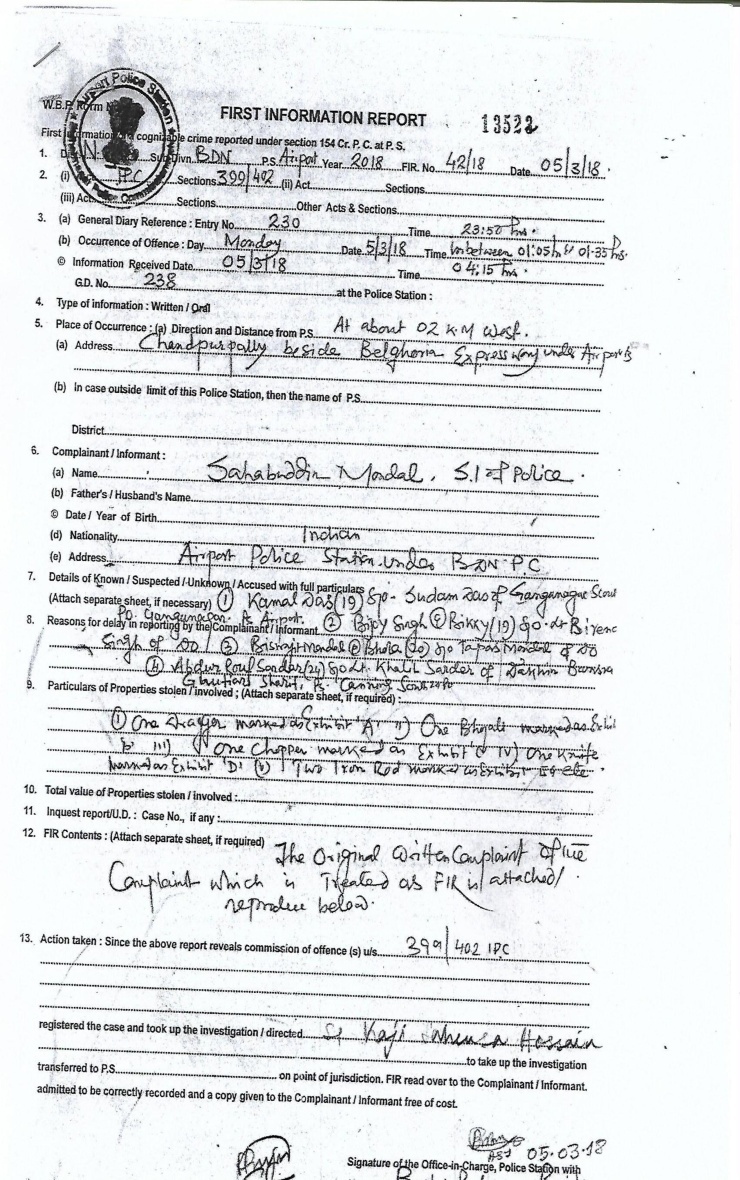 Airport Police Station
W.B.P. Form N
FIRST INFORMATION REPORT 13522
First Information of a cognizable crime reported under section 154 Cr. P. C. at P. S.
1. Sub-Divn. BDN P.S. Airport Year 2018 FIR. No. 42/18 Date 05/3/18.
2. (i) IPC Sections 399/402 (ii) Act Sections
(iii) Act Sections Other Acts & Sections
3. (a) General Diary Reference : Entry No. 230 Time 23:50 hrs.
(b) Occurrence of Offence : Day Monday Date 5/3/18 Time in between 01:05 h 01:35 hrs.
© Information Received Date 05/3/18 Time 04:15 hrs.
G.D. No. 238 at the Police Station :
4. Type of information : Written / Oral
5. Place of Occurrence : (a) Direction and Distance from P.S. At about 02 K.M West.
(a) Address Chandpurpally beside Belghoria Expressway under Airport
(b) In case outside limit of this Police Station, then the name of P.S.
District
6. Complainant / Informant :
(a) Name Sahabuddin Mondal, S.I of Police.
(b) Father's / Husband's Name
© Date / Year of Birth
(d) Nationality Indian
(e) Address Airport Police Station under BDN PC
7. Details of Known / Suspected / Unknown / Accused with full particulars
(Attach separate sheet, if necessary) ① Kamal Das (19) S/o- Sudam Das of Ganganagar
P.O. Ganganagar PS Airport.
8. Reasons for delay in reporting by the Complainant / Informant ② Singh @ Rokky (19) S/o
Singh of Do ③ Mondal @ Bhola (20) S/o Tapas Mondal of Do
④ Abdur Rouf Sardar S/o Lt. Khalil Sardar of
Sharif, PS Canning
9. Particulars of Properties stolen / involved ; (Attach separate sheet, if required) :
① One Dragger marked as Exhibit 'A' ii) One Bhojali marked as Exhi
b' iii) one chopper marked as Exhibit 'C' iv) One Knife
marked as Exhibit 'D' (v) Two Iron Rod marked as Exhibit
10. Total value of Properties stolen / involved :
11. Inquest report/U.D. : Case No., if any :
12. FIR Contents : (Attach separate sheet, if required) The Original Written Complaint of the
Complaint which is Treated as FIR is attached/
reproduce below.
13. Action taken : Since the above report reveals commission of offence (s) u/s. 399/402 IPC
registered the case and took up the investigation / directed SI Kaji Hossain
to take up the investigation
transferred to P.S. on point of jurisdiction. FIR read over to the Complainant / Informant.
admitted to be correctly recorded and a copy given to the Complainant / Informant free of cost.
ASI 05.03.18
Signature of the Office-in-Charge, Police Station with